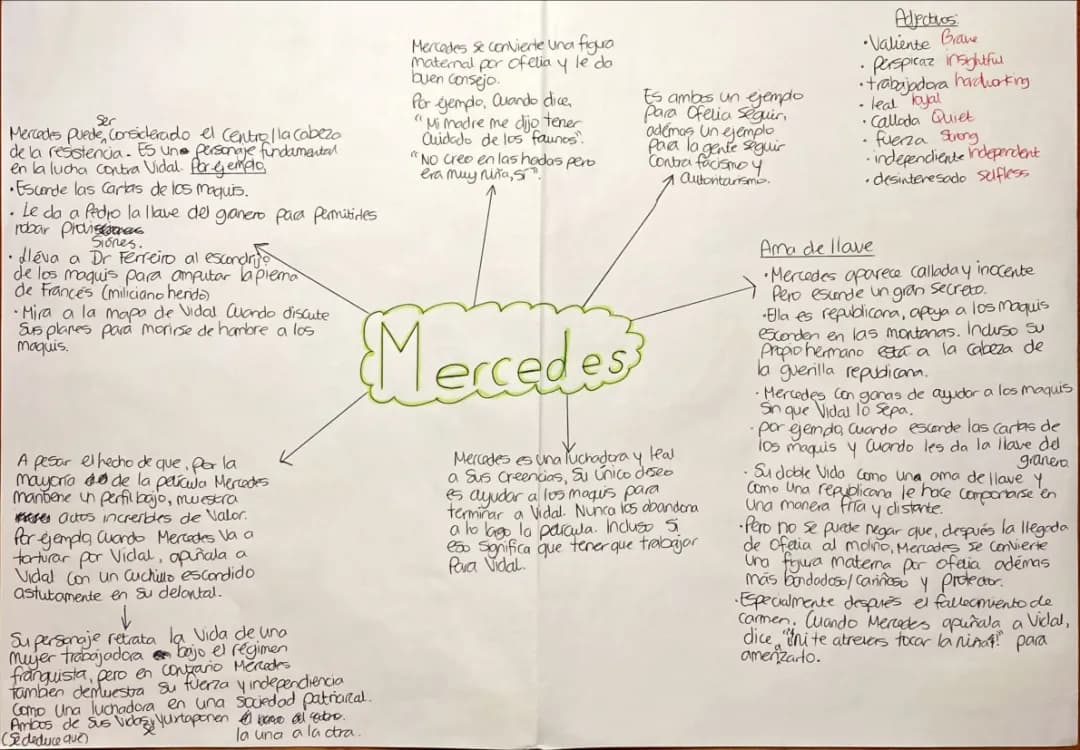 Mercedes se convierte una figura
maternal por Ofelia y le da
buen consejo.
Por ejemplo, Cuando dice,
"Mi madre me dijo tener
Cuidado de los faunos".
"No creo en las hadas pero
era muy niña, sí".
Es ambos un ejemplo
para Ofelia seguir,
además un ejemplo
para la gente seguir
contra facismo y
autoritarismo.
Adjectivos:
• Valiente Brave
• perspicaz insightful
• trabajadora hardworking
• leal loyal
• Callada Quiet
• fuerza Strong
• independiente Independent
• desinteresado Selfless
ser
Mercedes puede, considerado el centro/la cabeza
de la resistencia. Es una personaje fundamental
en la lucha contra Vidal. Por ejemplo,
• Esconde las cartas de los maquis.
• Le da a Pedro la llave del granero para permitirles
robar provi
siones.
• lléva a Dr Ferreiro al escondrijo
de los maquis para amputar la pierna
de Francés (miliciano herido)
• Mira a la mapa de Vidal Cuando discute
Sus planes para morirse de hambre a los
maquis.
Mercedes
Ama de llave
• Mercedes aparece callada y inocente
Pero esconde un gran secreto.
• Ella es republicana, apoya a los maquis
esconden en las montanas. Incluso su
propio hermano está a la cabeza de
la guerilla republicana.
• Mercedes con ganas de ayudar a los maquis
Sin que Vidal lo sepa.
• por ejemplo, cuando esconde las cartas de
los maquis y cuando les da la llave del
granero.
• Su doble Vida como una ama de llave y
como una republicana le hace comportarse en
una manera fría y distante.
• Pero no se puede negar que, después la llegada
de Ofelia al molino, Mercedes se convierte
una figura materna por ofelia además
más bondadoso/cariñoso y protector.
• Especialmente después el fallecimiento de
carmen. Cuando Mercedes apuñala a Vidal,
dice, "¡ni te atreves tocar la niña!" para
amenzarlo.
A pesar el hecho de que, por la
mayoría de la película Mercedes
mantiene un perfil bajo, muestra
actos increíbles de valor.
Por ejemplo, cuando Mercedes va a
torturar por Vidal, apuñala a
Vidal con un cuchillo escondido
astutamente en su delantal.
Mercedes es una luchadora y leal
a Sus creencias, Su único deseo
es ayudar a los maquis para
terminar a Vidal. Nunca los abandona
a lo largo la película. Incluso si
eso significa que tener que trabajar
para Vidal.
Su personaje retrata la Vida de una
mujer trabajadora bajo el régimen
franquista, pero en contrario Mercedes
tambien demuestra su fuerza y independiencia
Como una luchadora en una sociedad patriarcal.
Ambos de Sus Vidas yuxtaponen
(Se deduce que) se la una a la otra.